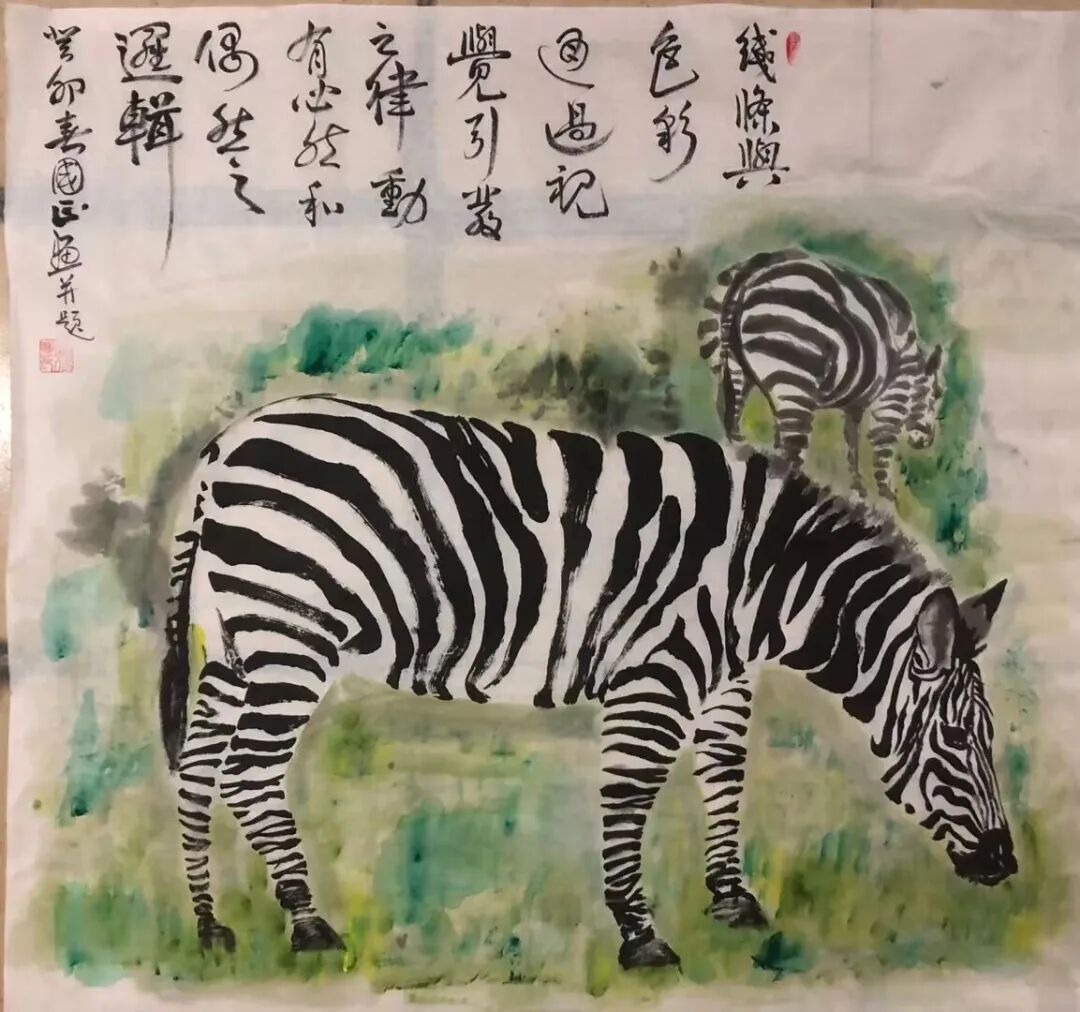 綫條與
色彩
通過視
覺引發
之律動
有必然和
偶然之
邏輯
癸卯春國正画并题